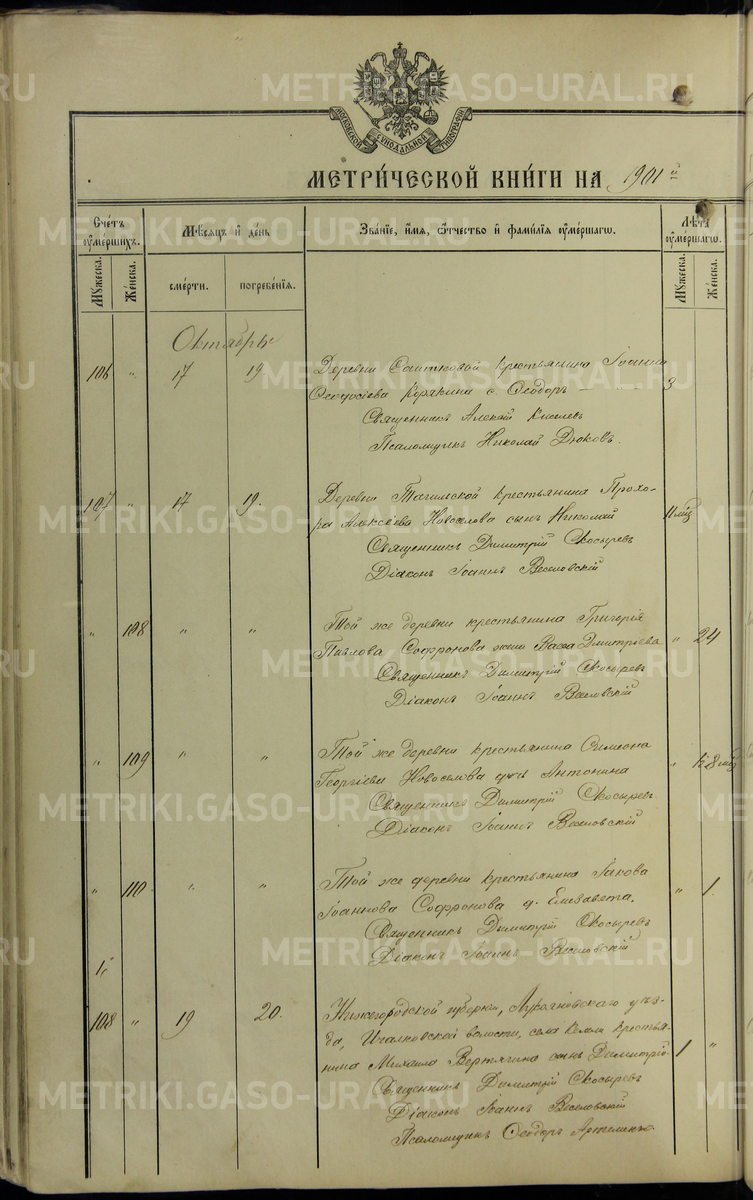 МОСКОВСКОЙ СѴНОДАЛЬНОЙ ТИПОГРАФІИ
МЕТРИ́ЧЕСКОЙ КНИ́ГИ НА 1901й
Сче́тъ ᲂу҆ме́ршихъ. Мѣ́сяцъ и҆ де́нь Зва́ніе, и҆́мя, ѻ҆́тчество и҆ фами́лія ᲂу҆ме́ршагѡ. Лѣ́та ᲂу҆ме́ршагѡ.
Мꙋ́жеска. Же́нска. сме́рти. погребе́нія. Мꙋ́жеска. Же́нска.
Октябрь
106 " 17 19 Деревни крестьянина Іоанна
Ѳеодосіева Корякина с. Ѳеодоръ 3
Священникъ Алексій Киселевъ
Псаломщикъ Николай Дюковъ.
107 " 17 19. Деревни Тагильской крестьянина Прохо-
ра Алексѣева Новоселова сынъ Николай 11 мѣс
Священникъ Димитрій Скосыревъ
Діаконъ Іоаннъ Веселовскій
" 108 " " Той же деревни крестьянина Григорія
Павлова Софронова жена Васса Дмитріева " 24
Священникъ Димитрій Скосыревъ
Діаконъ Іоаннъ Веселовскій
" 109 " " Той же деревни крестьянина Симеона
Георгіева Новоселова дчь Антонина " 8 мѣс
Священникъ Димитрій Скосыревъ
Діаконъ Іоаннъ Веселовскій
" 110 " " Той же деревни крестьянина Іакова
Іоаннова Софронова д. Елизавета. " 1.
Священникъ Димитрій Скосыревъ
Діаконъ Іоаннъ Веселовскій
108 " 19 20. Нижегородской губерніи, Лукояновскаго уѣз-
да, Ичалковской волости, села Кемли крестья-
нина Михаила Вертягина сынъ Димитрій 1 "
Священникъ Димитрій Скосыревъ
Діаконъ Іоаннъ Веселовскій
Псаломщикъ Ѳеодоръ
METRIKI.GASO-URAL.RU